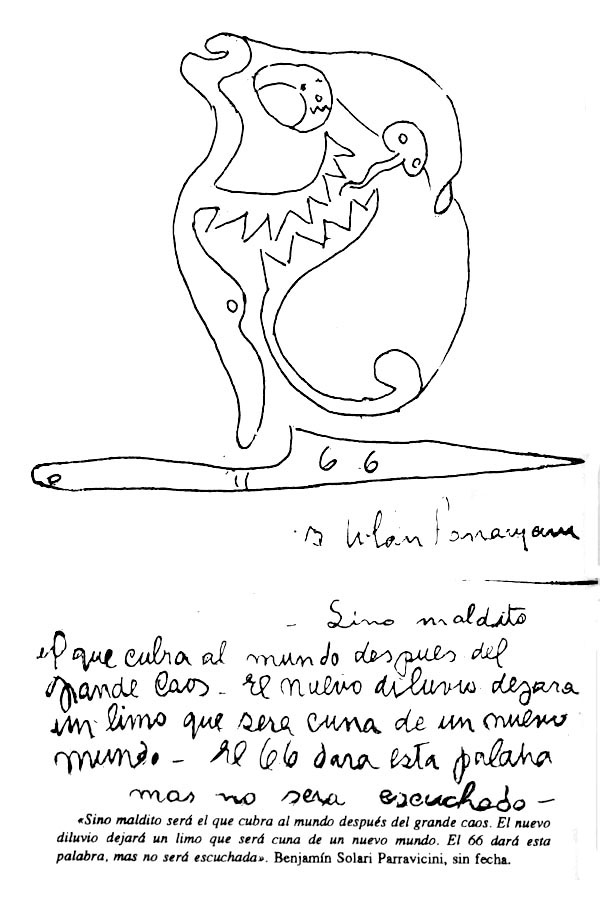 66
B Solari Parravicini
- Sino maldito
el que cubra al mundo despues del
grande caos - El nuevo diluvio dejara
un limo que sera cuna de un nuevo
mundo. - El 66 dara esta palabra
mas no sera escuchado -
«Sino maldito será el que cubra al mundo después del grande caos. El nuevo
diluvio dejará un limo que será cuna de un nuevo mundo. El 66 dará esta
palabra, mas no será escuchada». Benjamín Solari Parravicini, sin fecha.